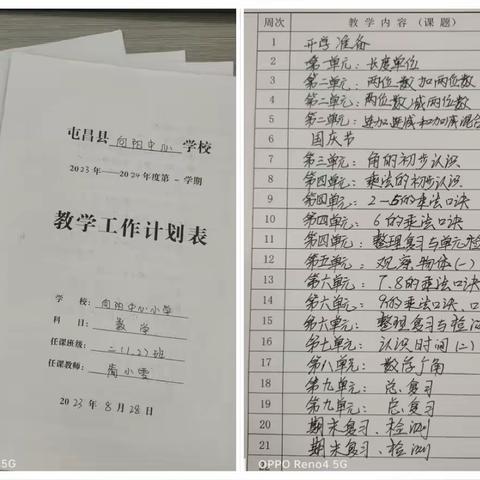 屯昌县 向阳中心 学校
2023年——2024年度第一学期
教学工作计划表
学 校：向阳中心小学
科 目：数学
任课班级：二(1.2)班
任课教师：小雪
2023年8月28日
5G
周次 教学内容（课题）
1 开学准备
2 第一单元：长度单位
3 第二单元：两位数加两位数
4 第二单元：两位数减两位数
5 第二单元：连加连减和加减混合
6 国庆节
7 第三单元：角的初步认识
8 第四单元：乘法的初步认识
9 第四单元：2-5的乘法口诀
10 第四单元：6的乘法口诀
11 第四单元：整理复习与单元检
12 第五单元：观察物体(一)
13 第六单元：7.8的乘法口诀
14 第六单元：9的乘法口诀、口
15 第六单元：整理复习与检测
16 第七单元：认识时间(二)
17 第八单元：数学广角
18 第九单元：总复习
19 第九单元：总复习
20 期末复习、检测
21 期末复习、检测
OPPO Reno4 5G